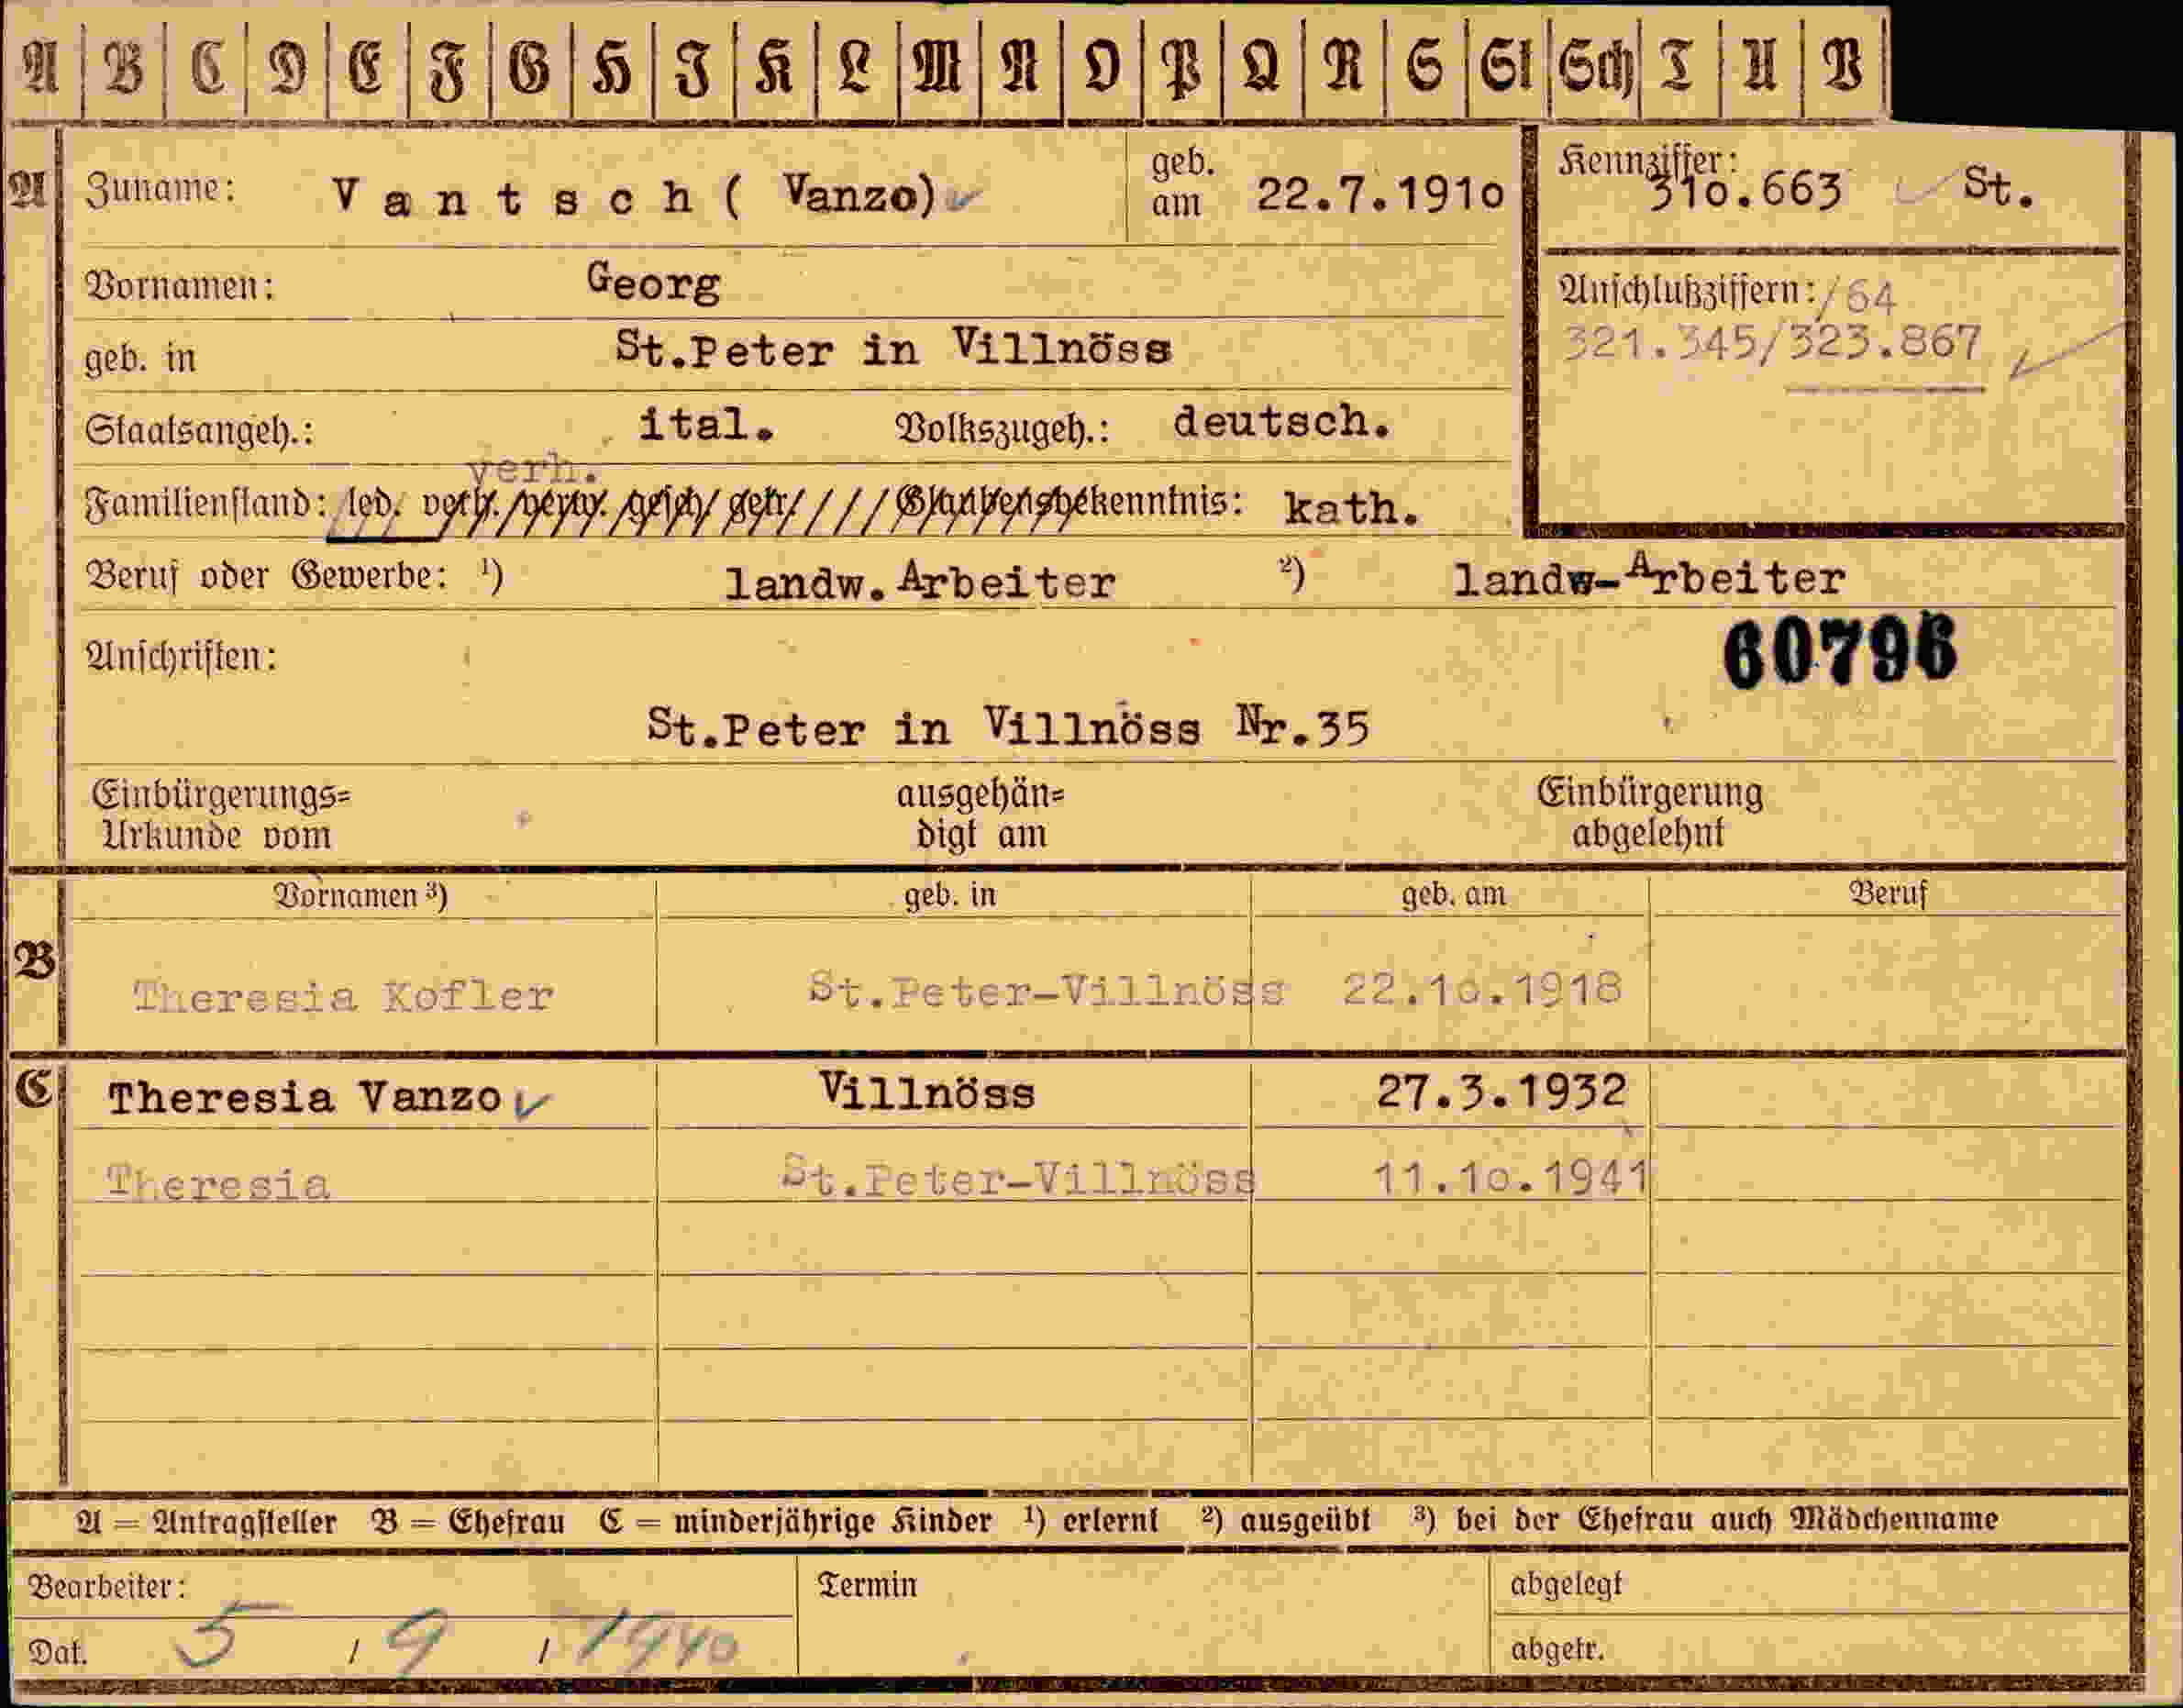 A B C D E F G H I K L M N O P Q R S St Sch T U V
A Zuname: Vantsch ( Vanzo) geb. am 22.7.1910 Kennziffer: 310.663 St.
Vornamen: Georg Anschlußziffern: /64
321.345/323.867
geb. in St.Peter in Villnöss
Staatsangeh.: ital. Volkszugeh.: deutsch.
verh.
Familienstand: led. verh. verw. gesch. getr. //// Glaubensbekenntnis: kath.
Beruf oder Gewerbe: ¹) landw.Arbeiter ²) landw-Arbeiter
Anschriften: 60796
St.Peter in Villnöss Nr.35
Einbürgerungs= ausgehän= Einbürgerung
Urkunde vom digt am abgelehnt
Vornamen ³) geb. in geb. am Beruf
B Theresia Kofler St.Peter-Villnöss 22.10.1918
C Theresia Vanzo Villnöss 27.3.1932
Theresia St.Peter-Villnöss 11.10.1941
A = Antragsteller B = Ehefrau C = minderjährige Kinder ¹) erlernt ²) ausgeübt ³) bei der Ehefrau auch Mädchenname
Bearbeiter: Termin abgelegt
Dat. 5 / 9 / 1940 abgetr.